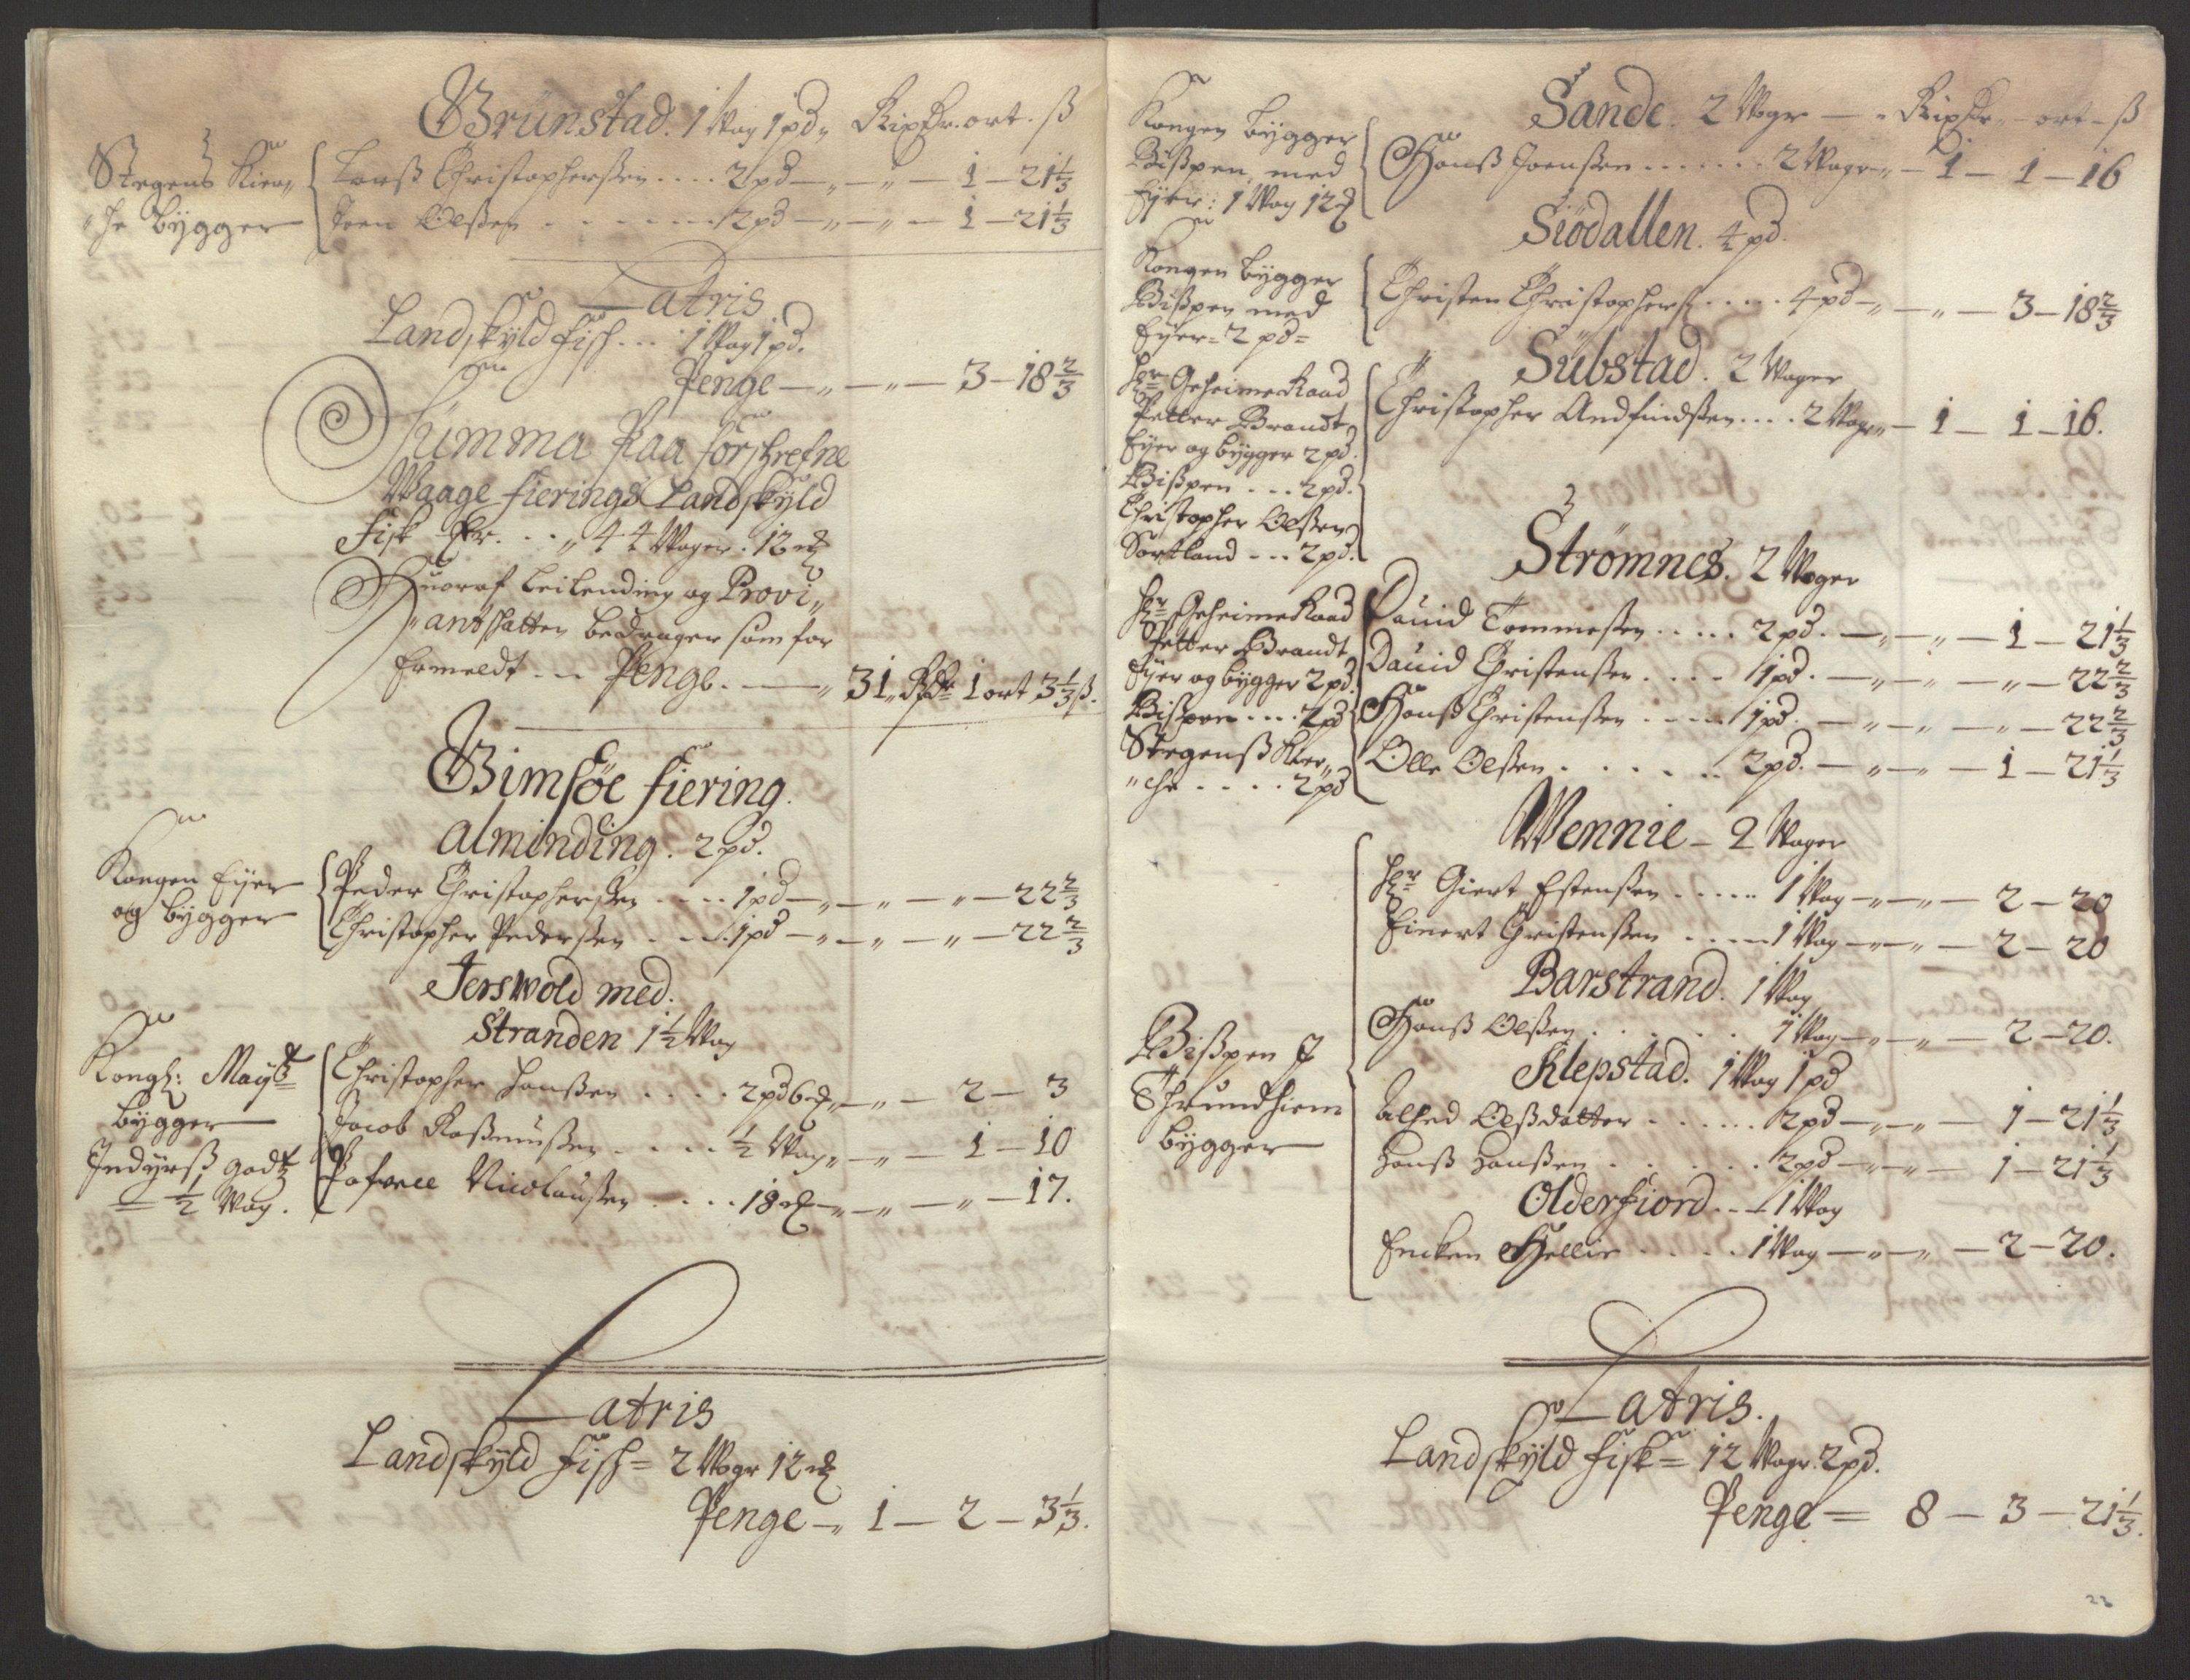 Brünstad. 1 Wog 1 pd „ Rixdr. ort. ß
Stegens Kier„
„che bÿgger
Larß Christopherßen . . . . 2 pd — „ — „ — 1 — 21 1/3
Joen Olßen . . . . . . . 2 pd — „ — „ — 1 — 21 1/3
Latris
Landskÿld fisch . . . 1 Wog 1 pd.
Penge — „ — „ — 3 — 18 2/3
Summa Paa forschrefne
Waage fierings Landskÿld
fisk Er. . . „ 44 Woger . 12
Huoraf leilending og Provi„
„antschatten bedrager som for
Ermeldt . . . Penge. — „ 31 „ Rdr 1 ort 3 1/3 ß.
Gimsöe fiering.
Alminding. 2 pd.
Kongen Eÿer
og bÿgger
Peder Christopherßen . . . . 1 pd — „ — „ — „ — 22 2/3
Christopher Pederßen . . . . 1 pd — „ — „ — „ — 22 2/3
Jerswold med.
Stranden 1 1/2 Wog
Kongl: Maÿtz
bÿgger
Jndÿrß godtz
1/2 Wog.
Christopher Hanßen . . . . 2 pd 6 „ — „ — 2 — 3
Jacob Raßmußen . . . . 1/2 Wog „ — „ — 1 — 10
Nicolaußen . . . . 18 — „ — „ — „ — 17.
Latris
Landskÿld fisch = 2 Wogr 12
Penge — „ 1 — 2 — 3 1/3.
Sande. 2 Wogr — „ Rixdr — ort — ß
Kongen bÿgger
Bißpen med
Eÿer: 1 Wog 12
Hanß Joenßen . . . . . . . 2 Wogr „ — 1 — 1 — 16
Siödallen. 4 pd.
Kongen bÿgger
Bißpen med
Eÿer = 2 pd =
Christen Christophers: . . . . . 4 pd — „ — „ — 3 — 18 2/3
Sübstad. 2 Woger
Hr GeheimeRaad
Petter Brandt
Eÿer og bÿgger 2 pd.
Bißpen . . . 2 pd.
Christopher Olßen
Sortland . . . 2 pd.
Christopher Andfindßen . . . . 2 Wogr „ — 1 — 1 — 16.
Strömnes. 2 Woger
Hr GeheimeRaad
Petter Brandt
Eÿer og bÿgger 2 pd.
Bißpen . . . . 2 pd
Stegenß Kier„
„che . . . . 2 pd
Dauid Tommeßen . . . . . 2 pd. — „ — „ — 1 — 21 1/3
Dauid Christenßen . . . . 1 pd. — „ — „ — „ — 22 2/3
Hanß Christenßen . . . . . 1 pd. — „ — „ — „ — 22 2/3
Olle Olßen . . . . . . 2 pd. — „ — „ — 1 — 21 1/3
Wennie — 2 Woger
Hr Giert Estenßen . . . . . 1 Wog — „ — „ — 2 — 20
Einert Christenßen . . . . 1 Wog — „ — „ — 2 — 20
Barstrand. 1 Wog
Hanß Olßen . . . . . . 1 Wog — „ — „ — 2 — 20.
Klepstad. 1 Wog 1 pd
Bißpen J
Thrundhiem
bÿgger
Olßdatter . . . . . . 2 pd — „ — „ — 1 — 21 1/3
Hanß Hanßen . . . . . . 2 pd — „ — „ — 1 — 21 1/3
Olderfiord . . . 1 Wog
Encken Hellie . . . . . 1 Wog — „ — „ — 2 — 20.
Latris.
Landskÿld fisk = 12 Wogr. 2 pd.
Penge = 8 — 3 — 21 1/3.
23